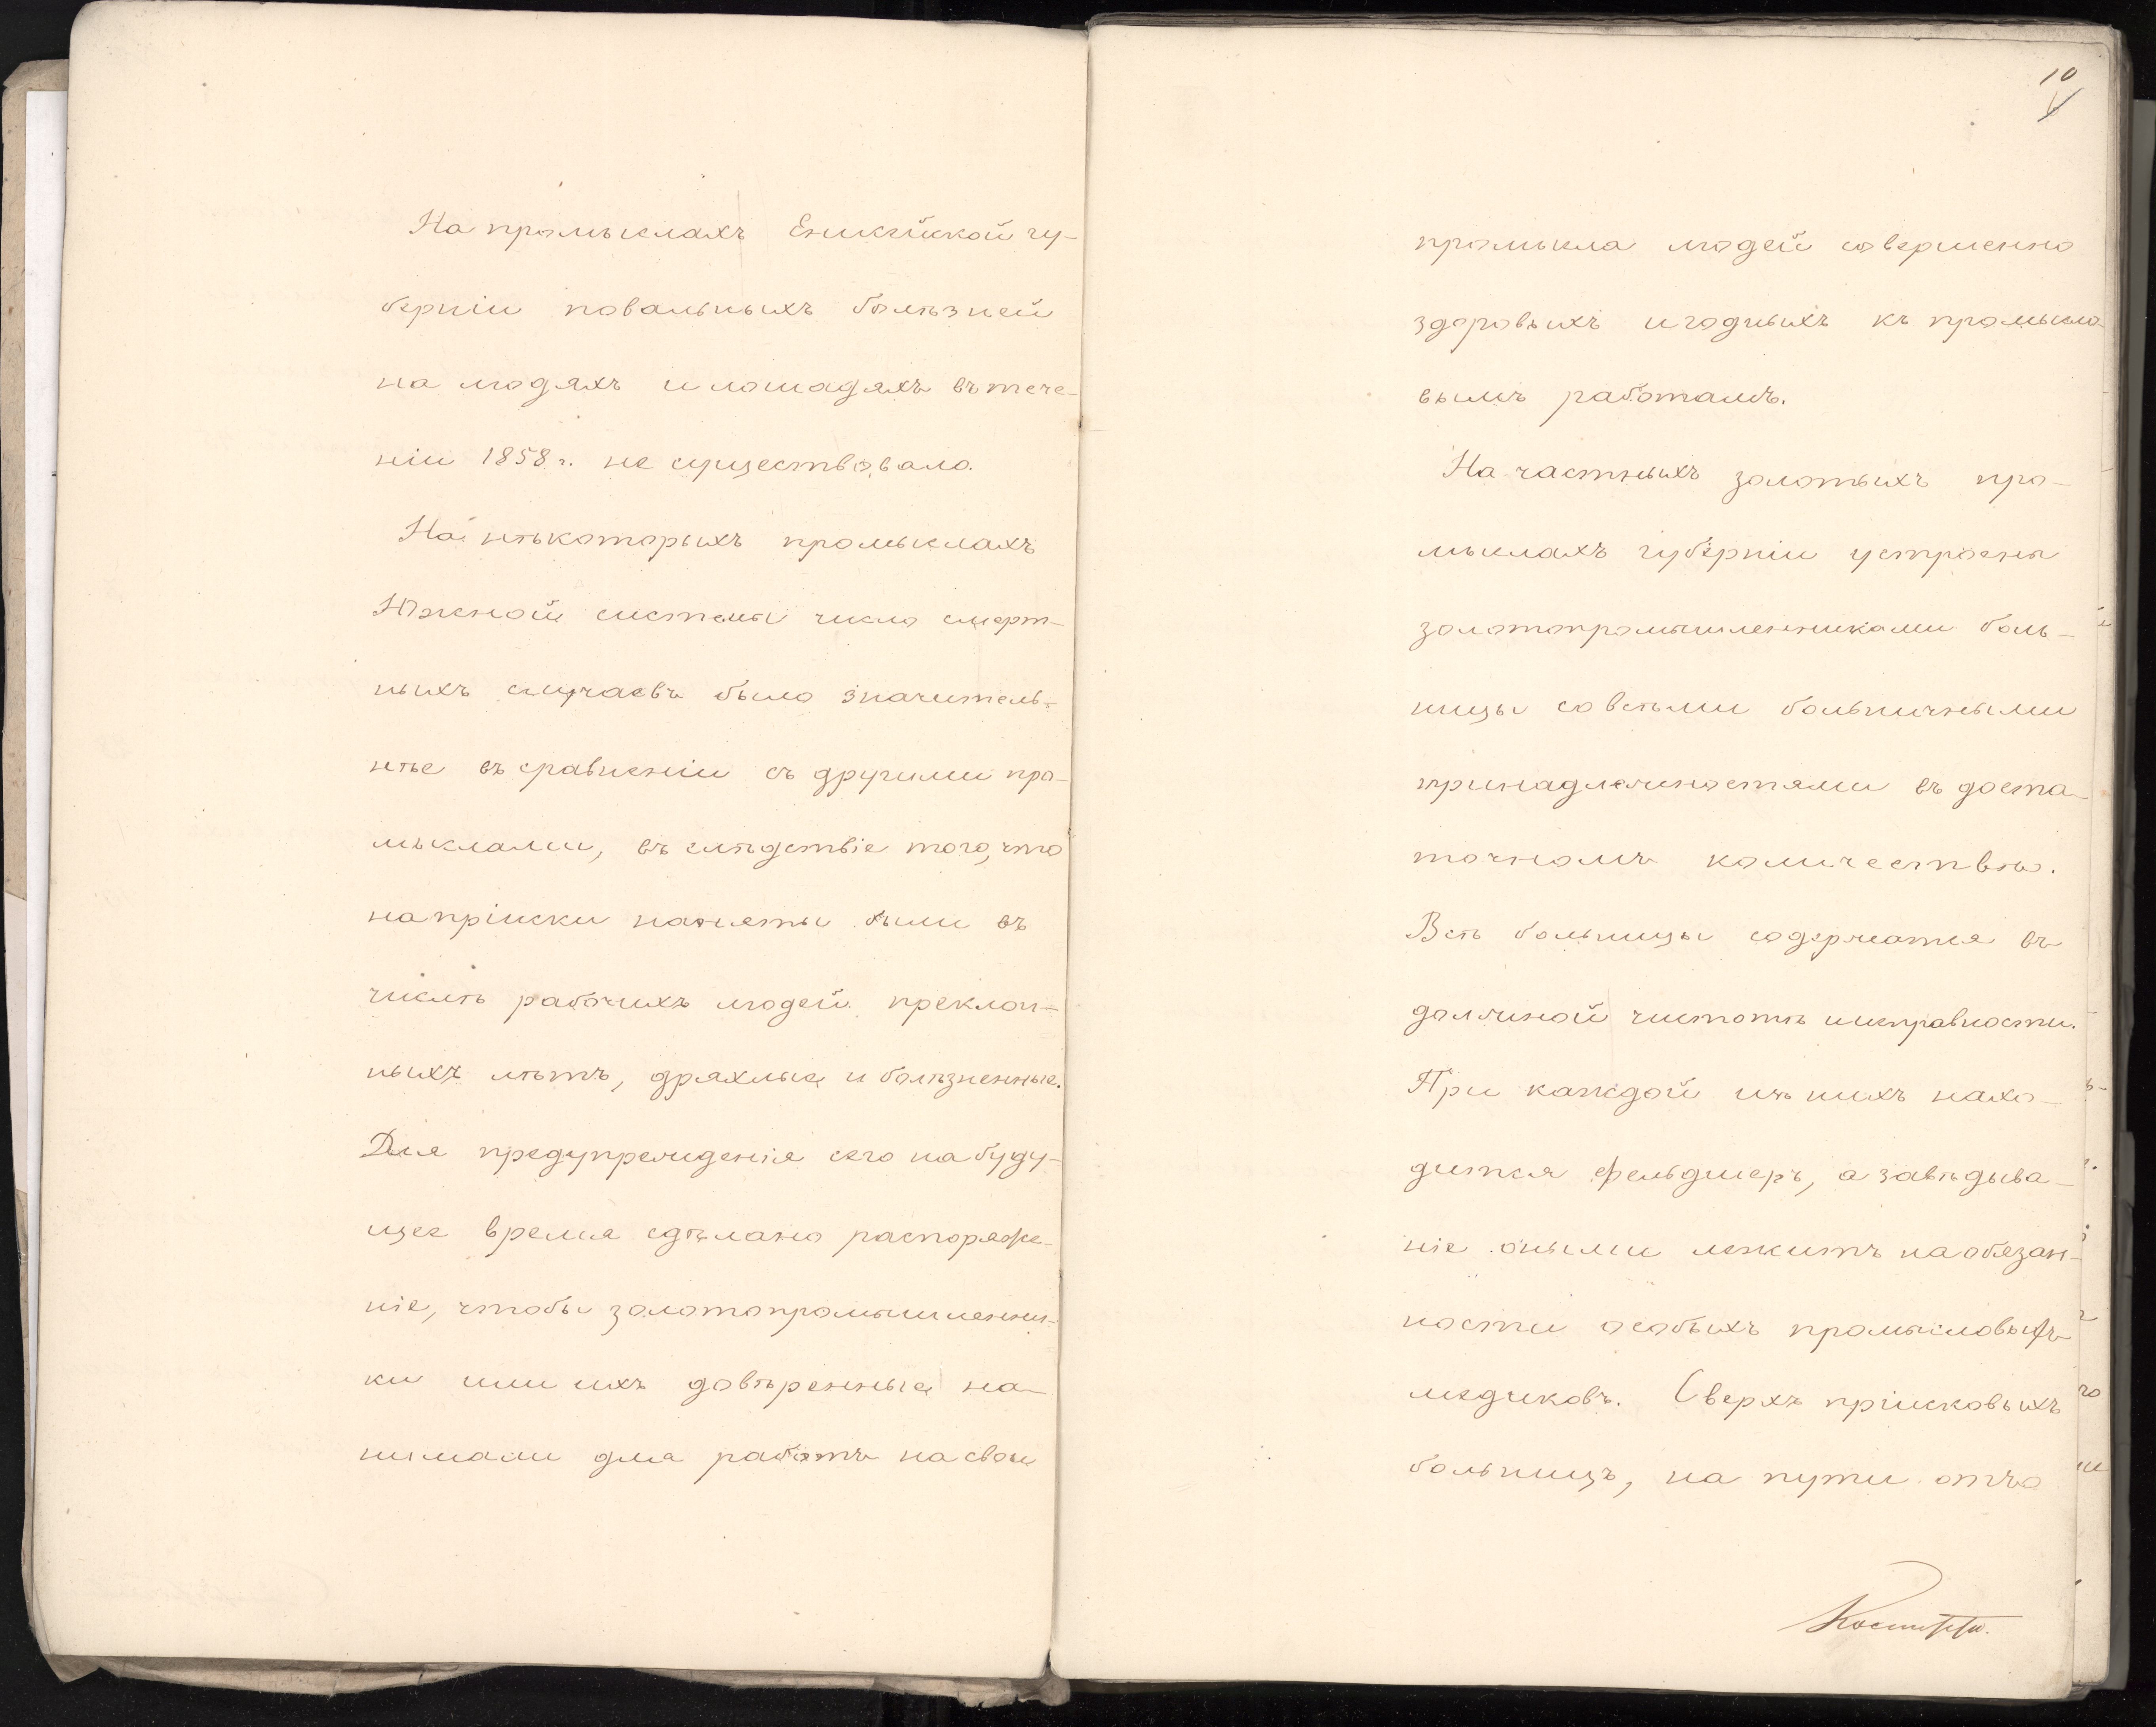 На промыслахъ Енисейской гу-
берніи повальныхъ болѣзней
на людяхъ и лошадяхъ въ тече-
ніи 1858 г. не существовало.
На нѣкоторыхъ промыслахъ
Южной системы число смерт-
ныхъ случаевъ было значитель-
нѣе въ сравненіи съ другими про-
мыслами, въ слѣдствіе того, что
на пріиски наняты были въ
числѣ рабочихъ людей преклон-
ныхъ лѣтъ, дряхлые и болѣзненные.
Для предупрежденія сего на буду-
щее время сдѣлано распоряже-
ніе, чтобы золотопромышленни-
ки или ихъ довѣренные на-
нимали для работъ на свои
10
промысла людей совершенно
здоровыхъ и годныхъ къ промысло-
вымъ работамъ.
На частныхъ золотыхъ про-
мыслахъ губерніи устроены
золотопромышленниками боль-
ницы со всѣми больничными
принадлежностями въ доста-
точномъ количествѣ.
Всѣ больницы содержатся въ
должной чистотѣ и исправности.
При каждой изъ нихъ нахо-
дится фельдшеръ, а завѣдыва-
ніе оными лежитъ на обязан-
ности особыхъ промысловыхъ
медиковъ. Сверхъ пріисковыхъ
больницъ, на пути отъ